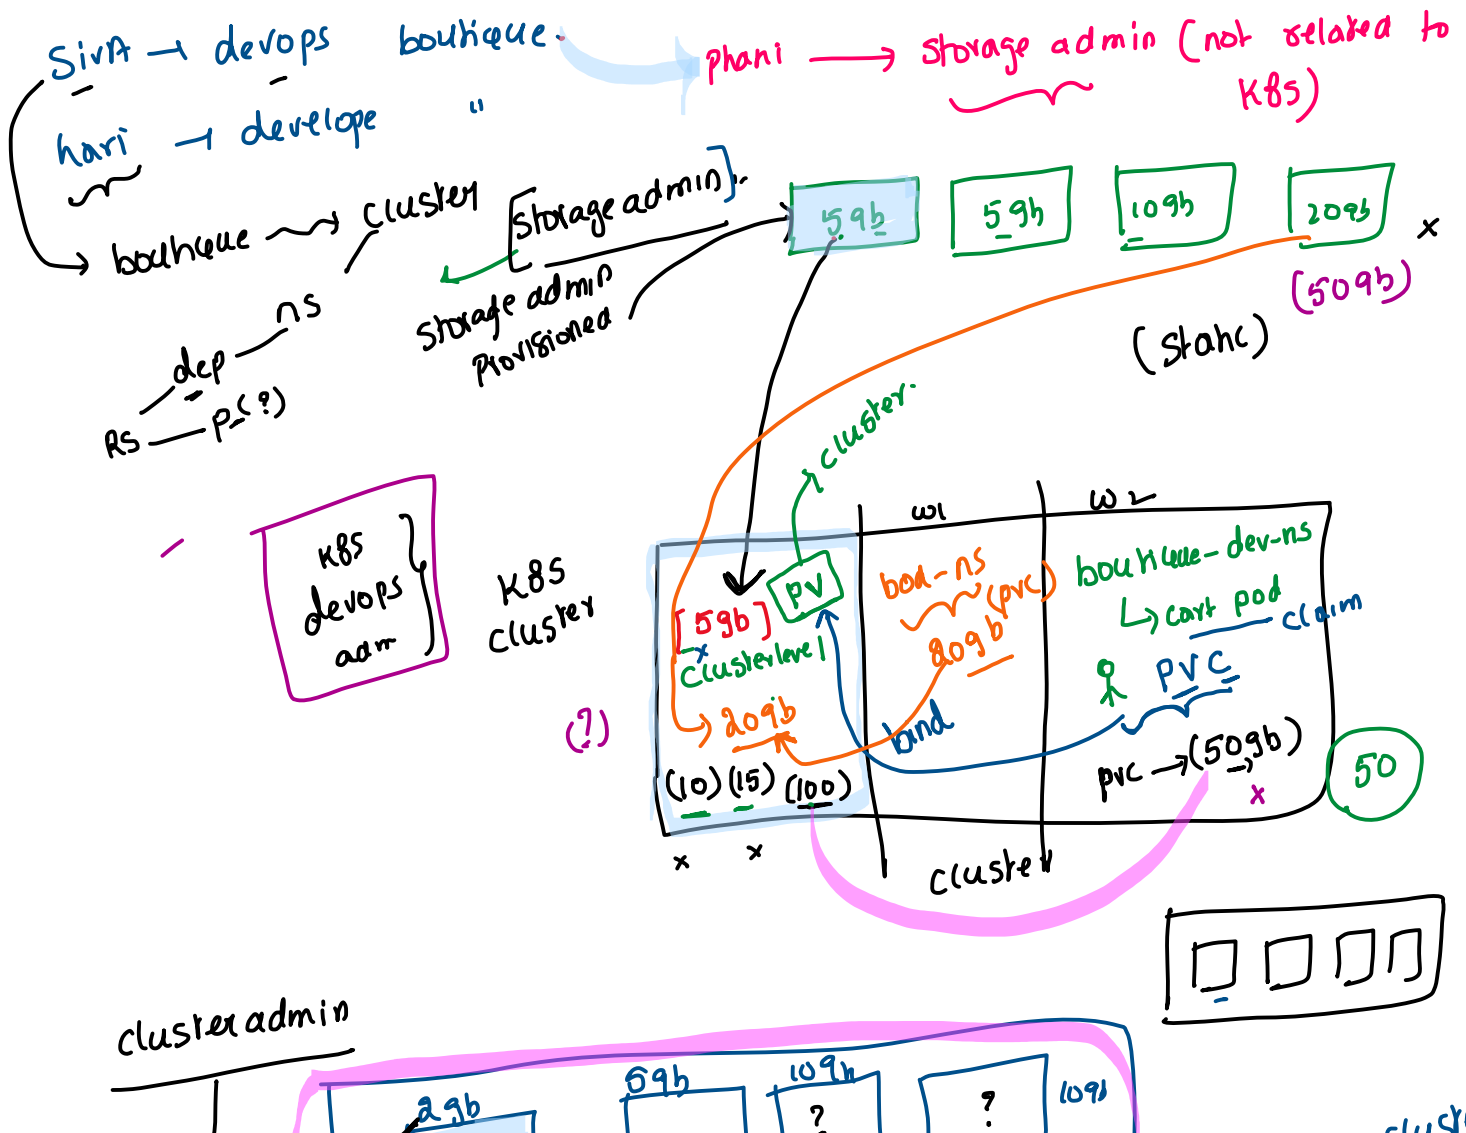 SivA → devops boutique.
phani → storage admin (not related to
K8S)
hari → develope "
boutique → cluster
[storage admin].
storage admin
provisioned
5gb 5gb 10gb 20gb x
(50gb)
(static)
ns
dep
RS — P(?)
cluster.
K8S
devops
adm
K8S
cluster
(?)
w1 w2
PV
[5gb]
x
clusterlevel
20gb
(10) (15) (100)
x x
(pvc)
20gb
bind
boutique-dev-ns
cart pod
claim
PVC
pvc → (50gb)
x
50
cluster
clusteradmin
2gb 5gb 10gb
? ?